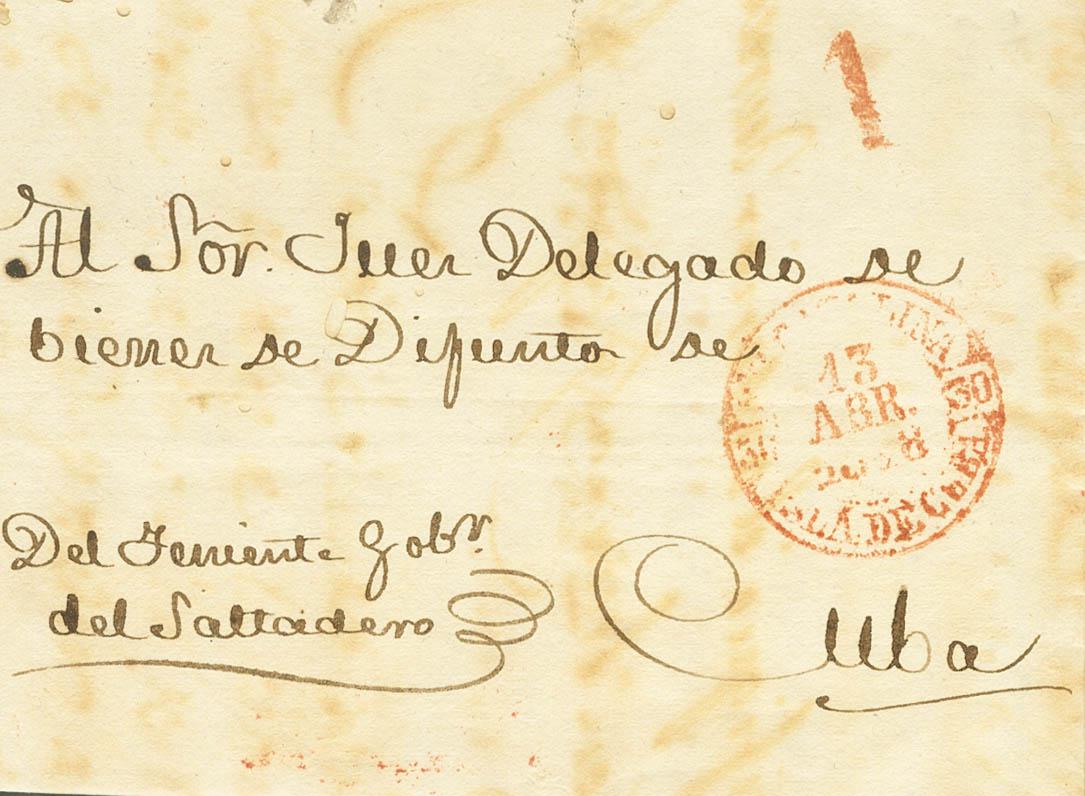 1
Al Sõr. Juez Delegado de
bienes de Difuntos de
13
ABR.
ISLA DE CUBA
30
Del Teniente Gobr.
del Saltadero
Cuba